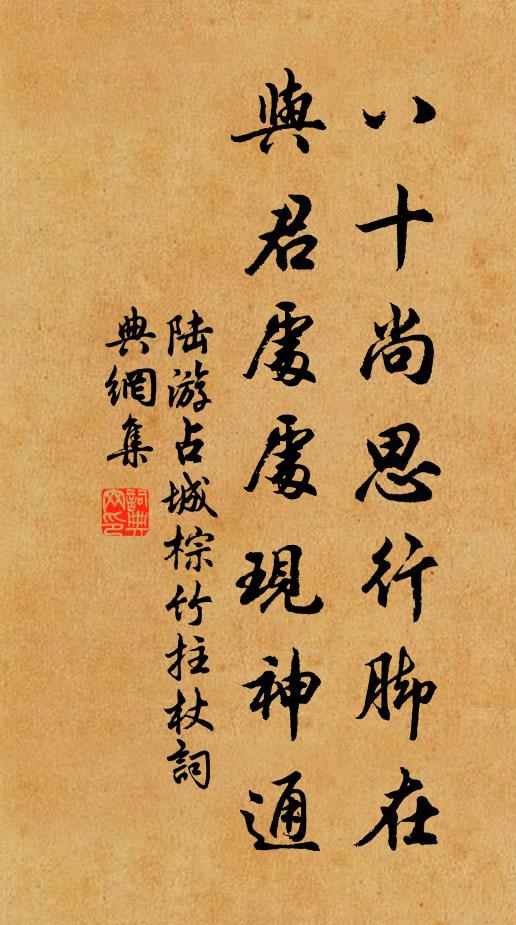 八十尚思行脚在
與君處處現神通
陆游占城棕竹拄杖詞
典網集
詞典网印